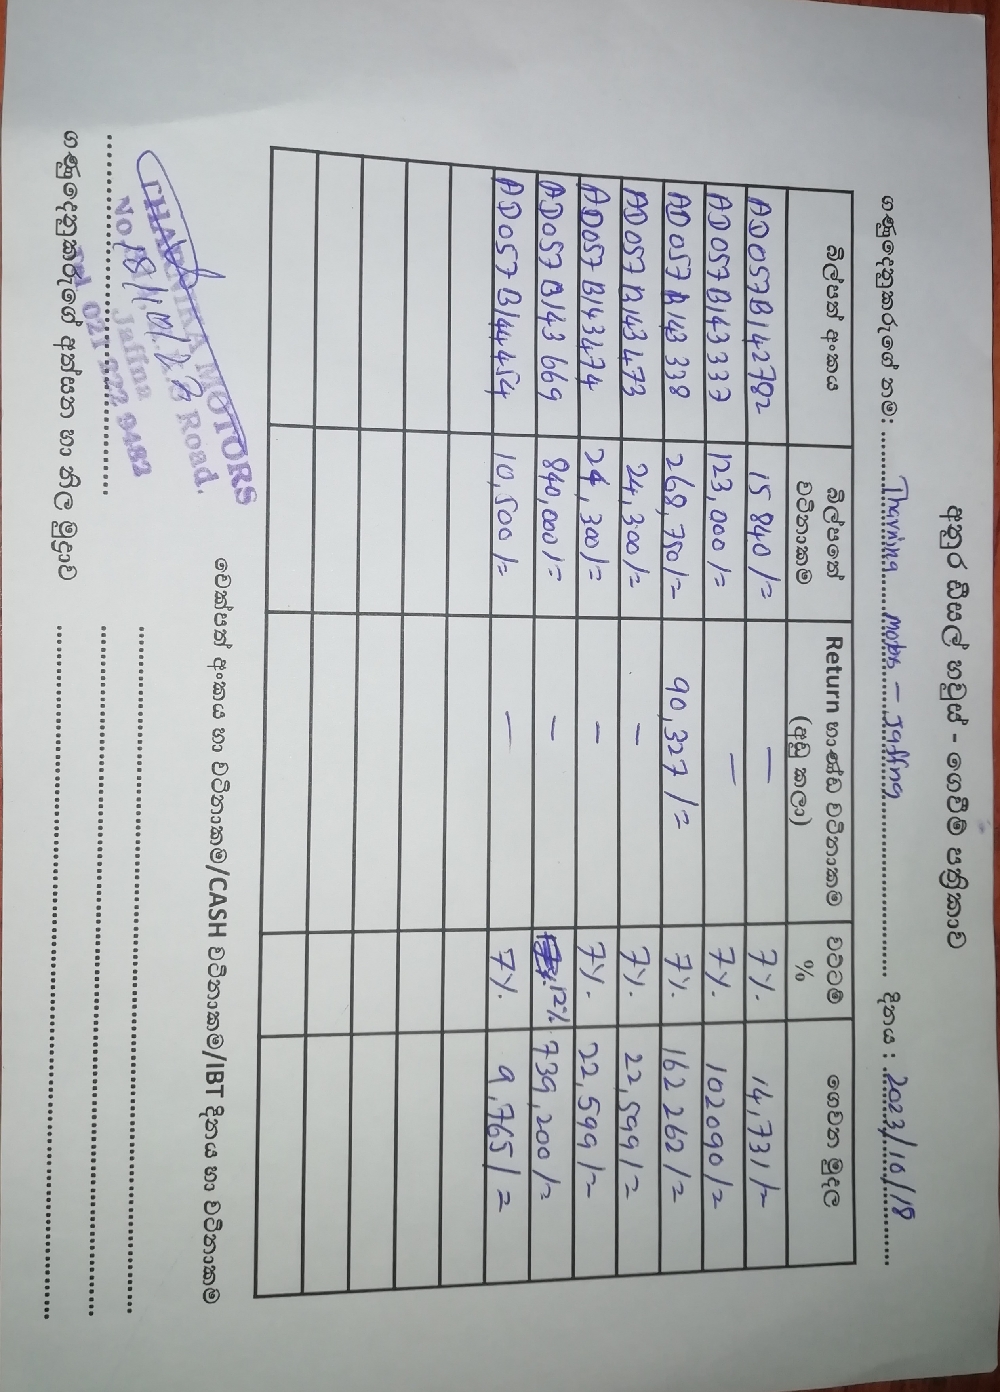 අතුර ඩීසල් හවුස් - ගෙවීම් පත්‍රිකාව
ගණුදෙනුකරුගේ නම: Tharnika Motors - Jaffna දිනය: 2023/10/18
බිල්පත් අංකය බිල්පතේ වටිනාකම Return භාණ්ඩ වටිනාකම (අඩු කලා) වට්ටම % ගෙවන මුදල
AD057B142782 15840/= — 7% 14,731/=
AD057B143337 123,000/= — 7% 102090/=
AD057B143338 268,750/= 90,327/= 7% 162262/=
AD057B143473 24,300/= — 7% 22,599/=
AD057B143474 24,300/= — 7% 22,599/=
AD057B143669 840,000/= — 12% 739,200/=
AD057B144454 10,500/= — 7% 9,765/=
චෙක්පත් අංකය හා වටිනාකම/CASH වටිනාකම/IBT දිනය හා වටිනාකම
THARNIKA MOTORS
No Road,
Jaffna
Tel 021 222 9483
18/10/23
ගණුදෙනුකරුගේ අත්සන හා නිල මුද්‍රාව